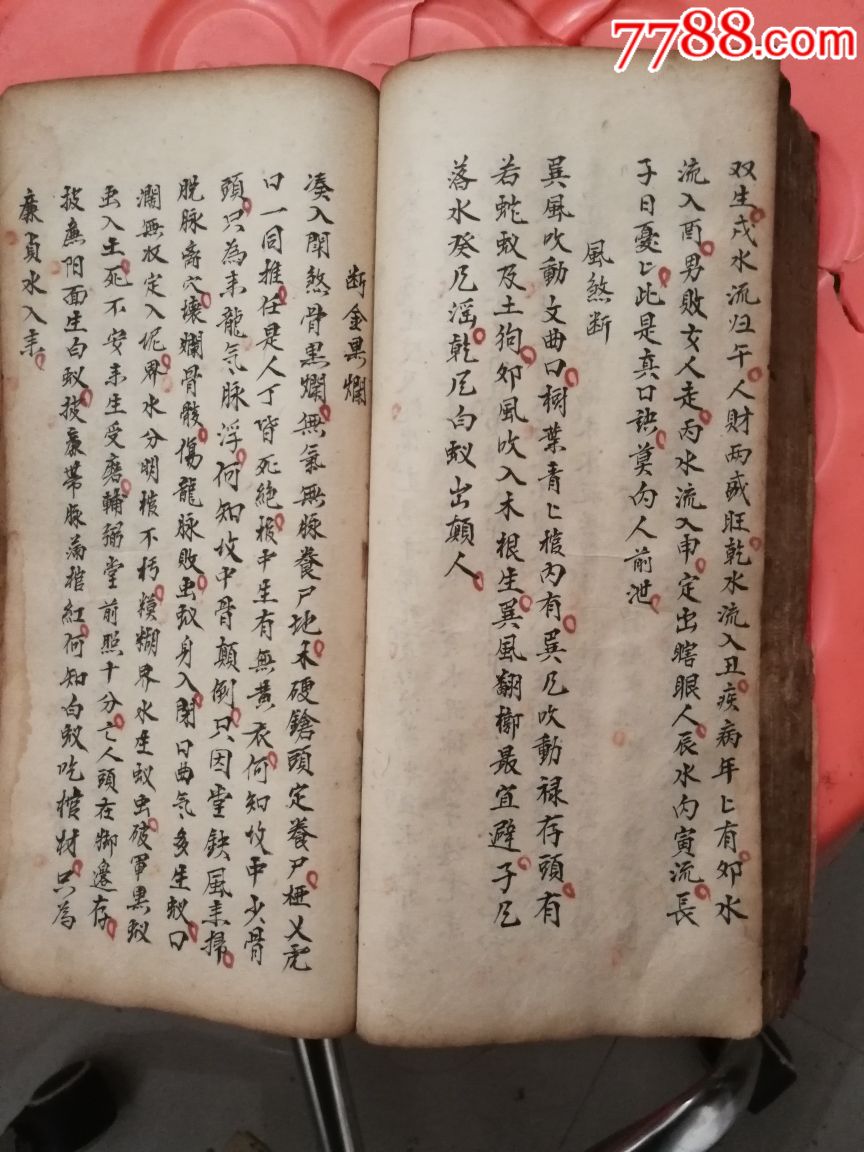 7788.com
双生戌水流归午人財两盛旺乾水流入丑疾病年〻有卯水
流入酉男敗女人走丙水流入申定出瞎眼人辰水内寅流長
子日憂〻此是真口訣莫向人前泄
風煞断
巽風吹動文曲口樹葉青〻棺内有巽凡吹動禄存頭有
若蛇蚁及土狗卯風吹入木根生巽風翻槨最宜避子凡
落水癸凡滛乾凡白蚁出顛人
断金果爛
凑入閗煞骨黒爛無氣無脉養尸地禾硬鎗頭定養尸極乂
口一同推任是人丁皆死絶棺中生有無黄衣何知坟中少骨
頭只為来龍気脉浮何知坟中骨顛倒只因堂鈌風来掃
脱脉离穴壊爛骨骸傷龍脉敗虫蚁身入閗口曲気多生蚁口
濶無収定入坭界水分明棺不朽糢糊界水生蚁虫破軍黒蚁
虫入土死不安来生受磨輔弼堂前照十分亡人頭在脚邊存
披蔴阳面生白蚁披蔴帯脉滿棺紅何知白蚁吃棺材只為
廉貞水入来